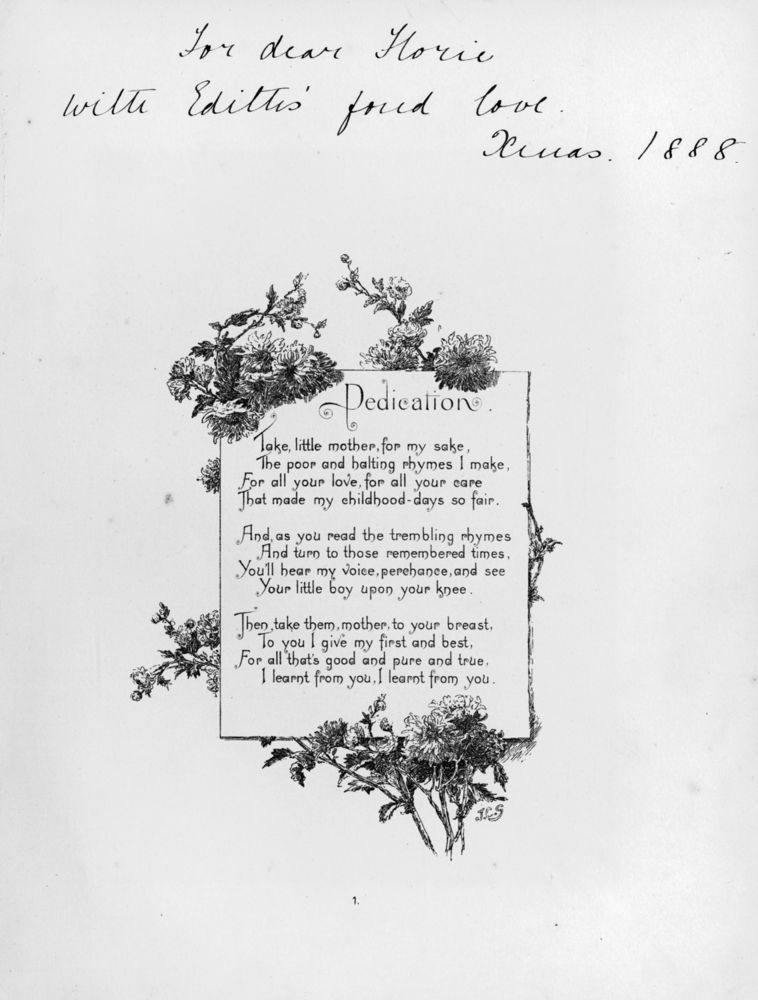 For dear Florie
with Edith's fond love.
Xmas. 1888.
Dedication.
Take, little mother, for my sake,
The poor and halting rhymes I make,
For all your love, for all your care
That made my childhood-days so fair.
And, as you read the trembling rhymes
And turn to those remembered times,
You'll hear my voice, perchance, and see
Your little boy upon your knee.
Then, take them, mother, to your breast,
To you I give my first and best,
For all that's good and pure and true,
I learnt from you, I learnt from you.
1.